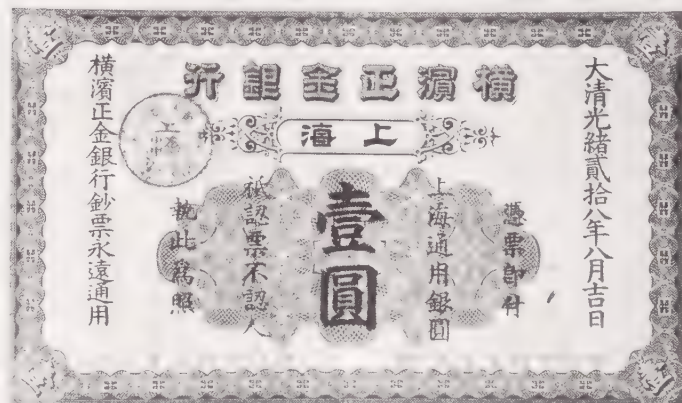 橫濱正金銀行
上海
大清光緒貳拾八年八月吉日
憑票即付
上海通用銀圓
壹圓
祗認票不認人
執此為照
橫濱正金銀行鈔票永遠通用